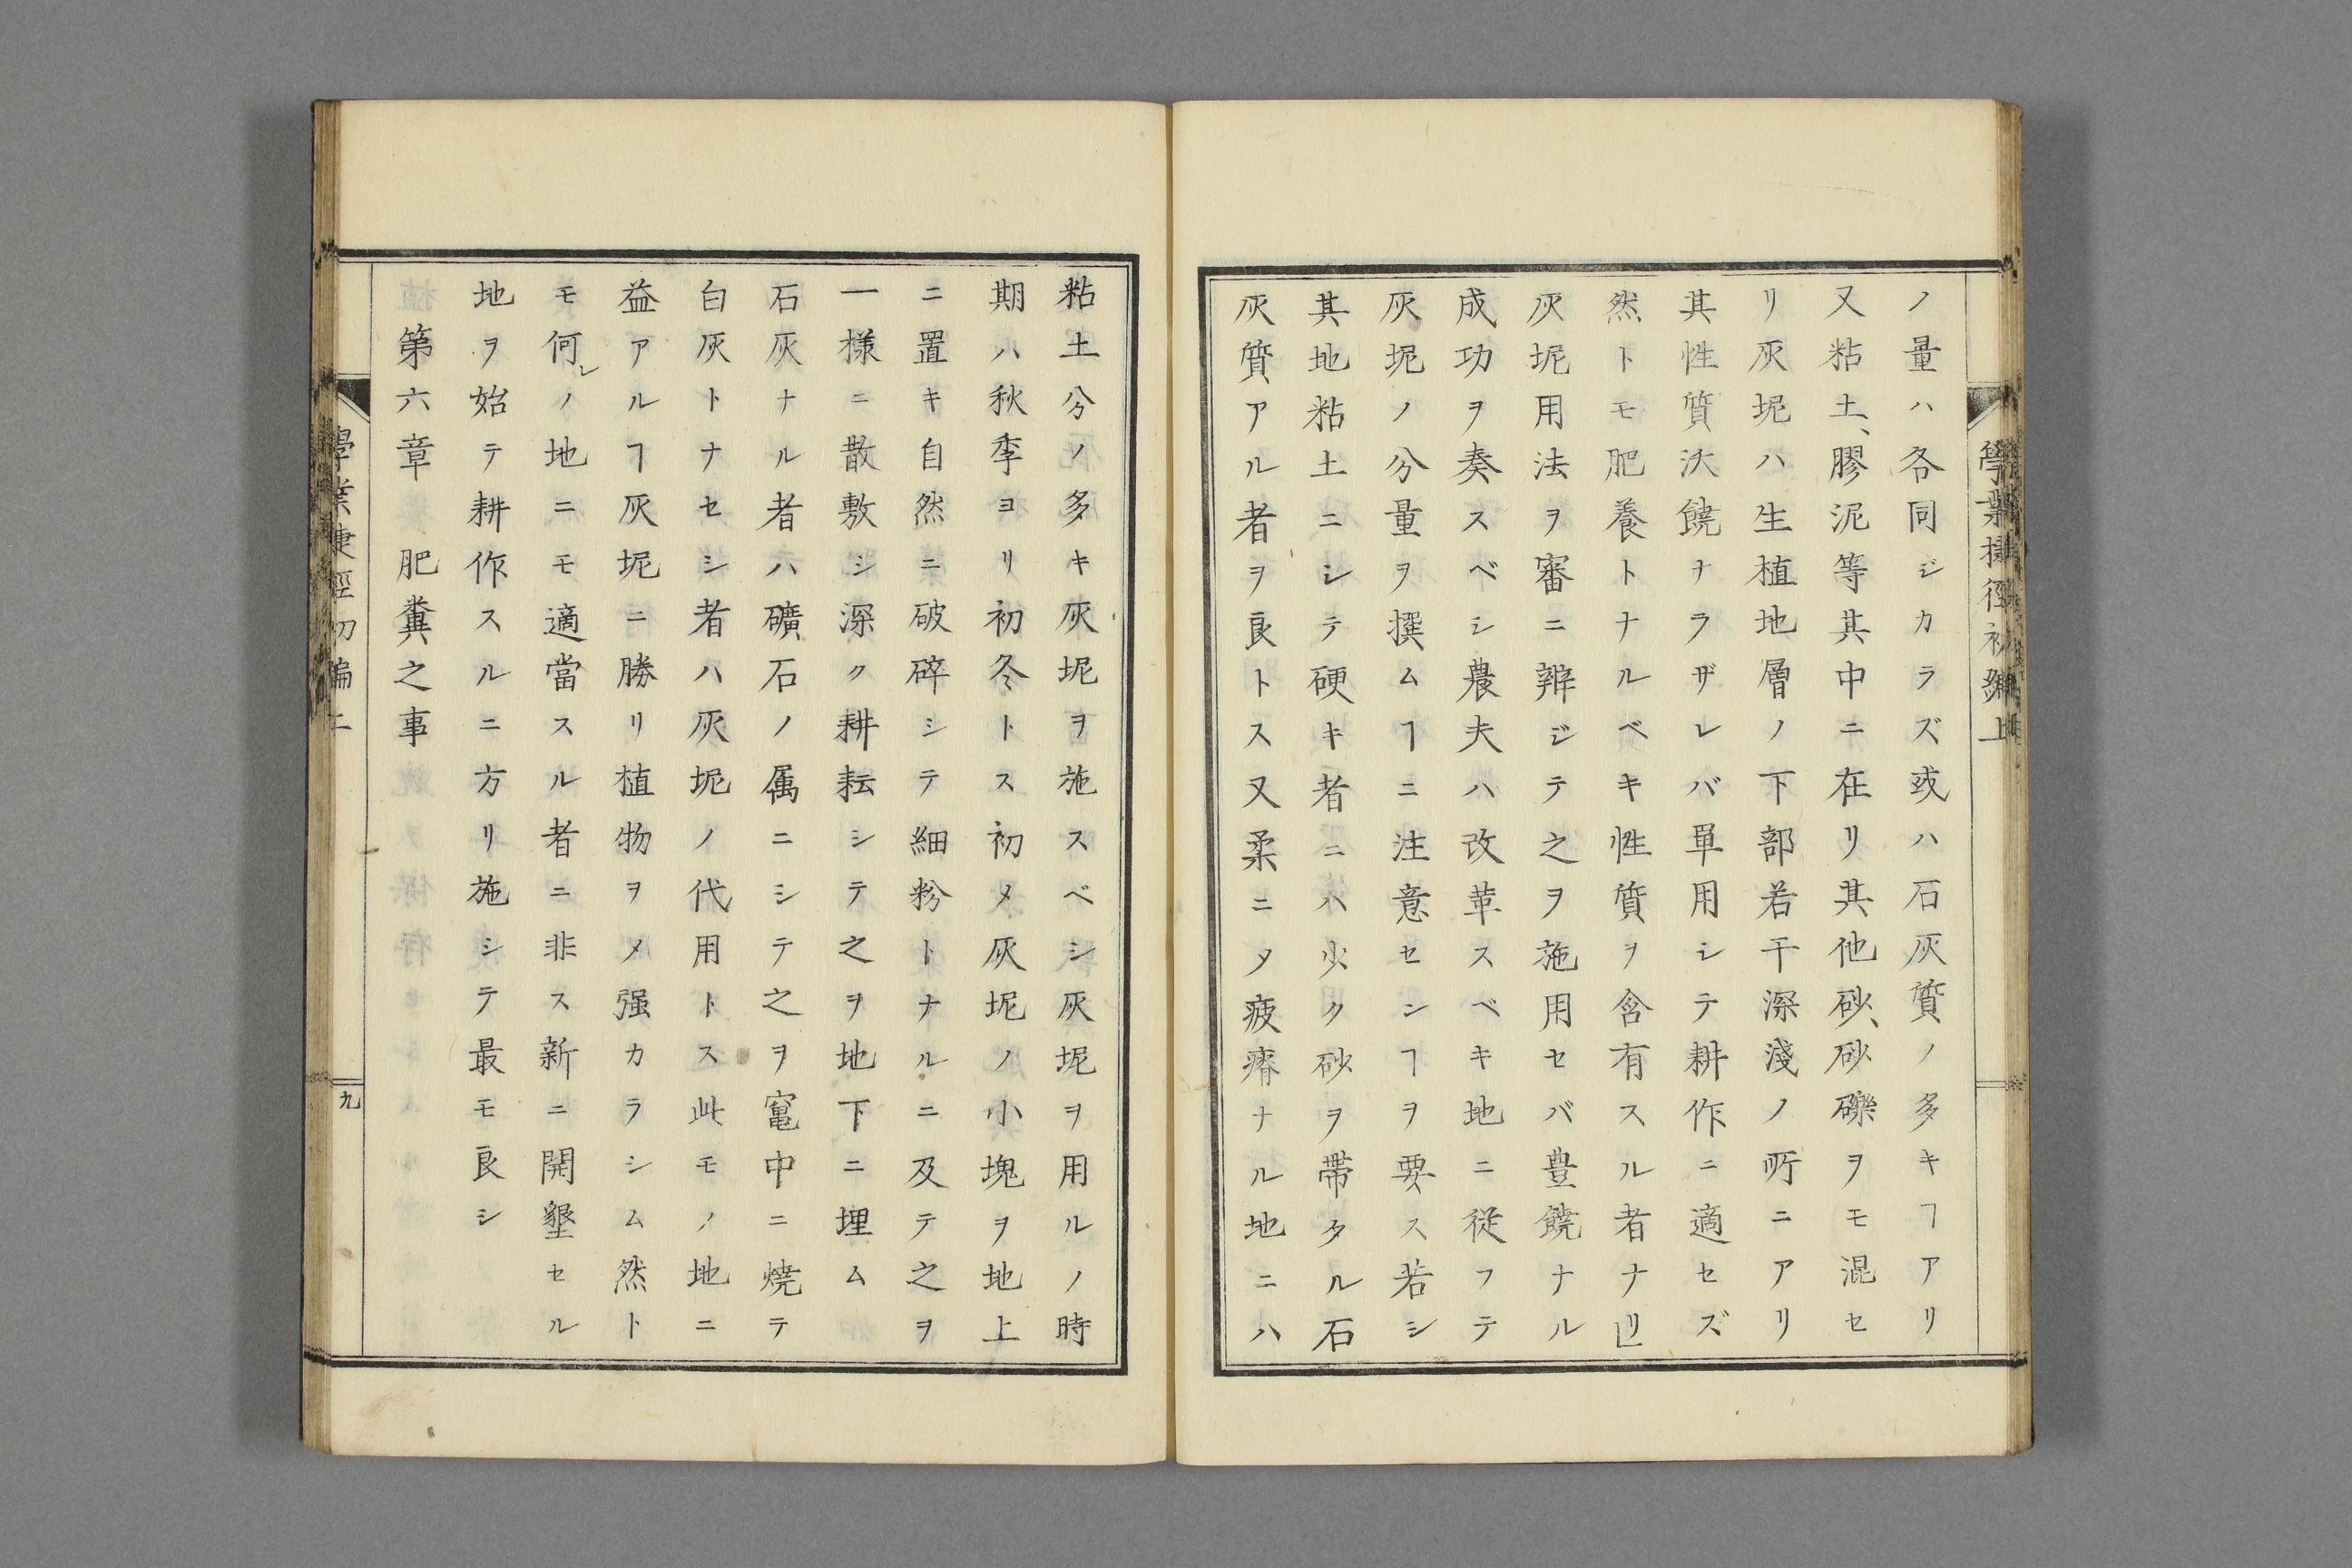 學業捷徑初編上
ノ量ハ各同ジカラズ或ハ石灰質ノ多キヿアリ
又粘土、膠泥等其中ニ在リ其他砂、砂礫ヲモ混セ
リ灰坭ハ生植地層ノ下部若干深淺ノ所ニアリ
其性質沃饒ナラザレバ單用シテ耕作ニ適セズ
然トモ肥養トナルベキ性質ヲ含有スル者ナリ
灰坭用法ヲ審ニ辨ジテ之ヲ施用セバ豊饒ナル
成功ヲ奏スベシ農夫ハ改革スベキ地ニ從フテ
灰坭ノ分量ヲ撰ムヿニ注意センヿヲ要ス若シ
其地粘土ニシテ硬キ者ニハ少ク砂ヲ帶タル石
灰質アル者ヲ良トス又柔ニメ疲瘠ナル地ニハ
粘土分ノ多キ灰坭ヲ施スベシ灰坭ヲ用ルノ時
期ハ秋季ヨリ初冬トス初メ灰坭ノ小塊ヲ地上
ニ置キ自然ニ破碎シテ細粉トナルニ及テ之ヲ
一樣ニ散敷シ深ク耕耘シテ之ヲ地下ニ埋ム
石灰ナル者ハ礦石ノ属ニシテ之ヲ竃中ニ燒テ
白灰トナセシ者ハ灰坭ノ代用トス此モノノ地ニ
益アルヿ灰坭ニ勝リ植物ヲメ强カラシム然ト
モ何レノ地ニモ適當スル者ニ非ス新ニ開墾セル
地ヲ始テ耕作スルニ方リ施シテ最モ良シ
第六章　肥糞之事
學業捷徑初編上
九